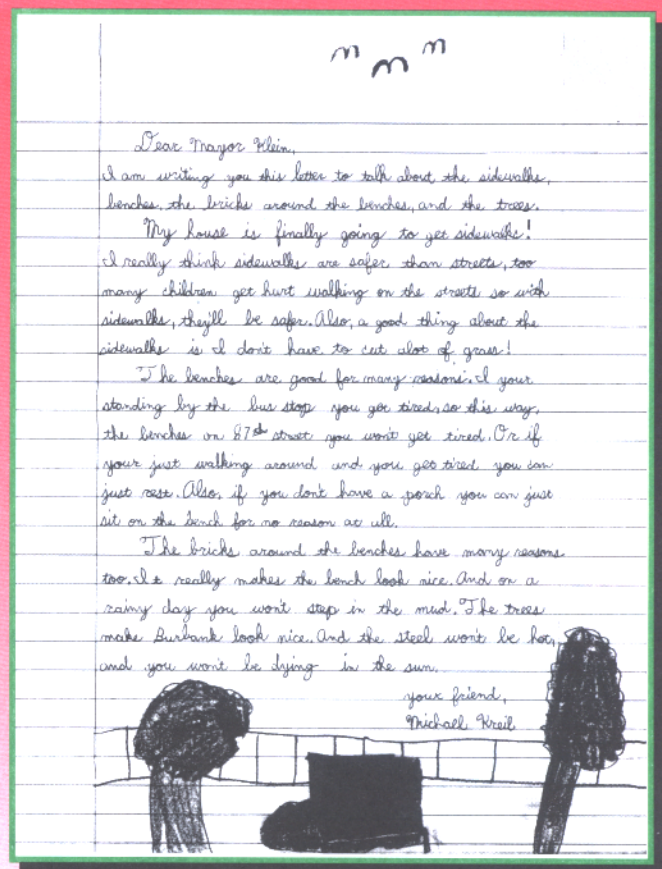 Dear Mayor Klein,
I am writing you this letter to talk about the sidewalks,
benches, the bricks around the benches, and the trees.
My house is finally going to get sidewalks!
I really think sidewalks are safer than streets, too
many children get hurt walking on the streets so with
sidewalks, they'll be safer. Also, a good thing about the
sidewalks is I don't have to cut alot of grass!
The benches are good for many reasons. I your
standing by the bus stop you get tired, so this way,
the benches on 87th street you won't get tired. Or if
your just walking around and you get tired you can
just rest. Also, if you don't have a porch you can just
sit on the bench for no reason at all.
The bricks around the benches have many reasons
too. It really makes the bench look nice. And on a
rainy day you won't step in the mud. The trees
make Burbank look nice. And the steel won't be hot,
and you won't be dying in the sun.
your friend,
Michael Kreil